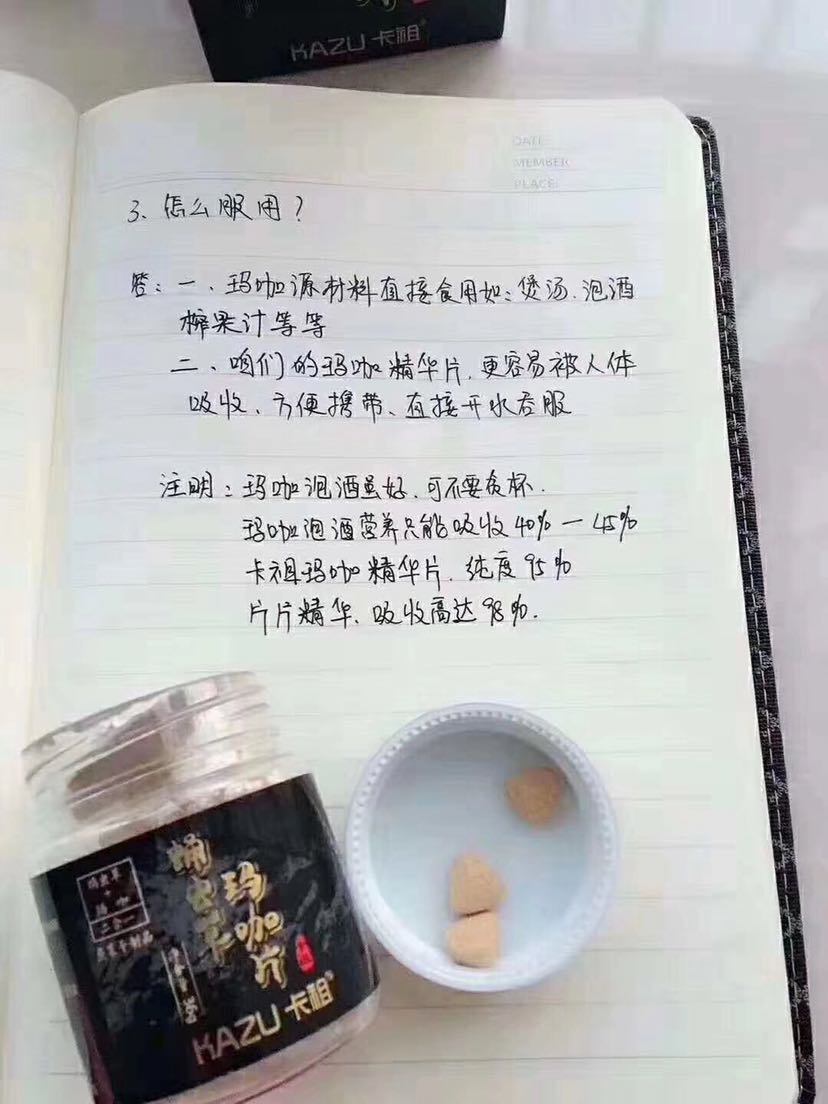 KAZU卡祖®
DATE:
MEMBER:
PLACE:
3、怎么服用？
答：一、玛咖源材料直接食用如：煲汤、泡酒
榨果汁等等
二、咱们的玛咖精华片，更容易被人体
吸收、方便携带、直接开水吞服
注明：玛咖泡酒虽好，可不要贪杯．
玛咖泡酒营养只能吸收40%—45%
卡祖玛咖精华片．纯度95%
片片精华、吸收高达98%．
蛹虫草
玛咖片
蛹虫草
+
玛咖
二合一
KAZU卡祖®